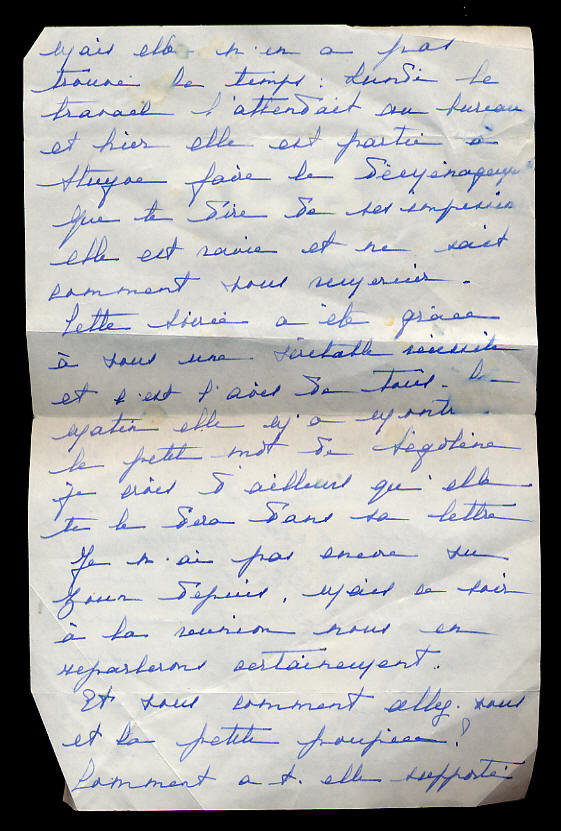 Mais elle n'en a pas
trouvé le temps. Lundi le
travail l'attendait au bureau
et hier elle est partie à
faire le déménagement
Que te dire de ses
elle est ravie et ne sait
comment vous remercier.
Cette soirée a été grâce
à vous une véritable réussite
et c'est l'avis de tous. Ce
matin elle m'a montré
le petit mot de Ségolène
Je crois d'ailleurs qu'elle
te le dira dans sa lettre
Je n'ai pas encore vu
depuis, mais ce soir
à la réunion nous en
reparlerons certainement.
Et vous comment allez-vous
et la petite poupée?
Comment a-t-elle supporté